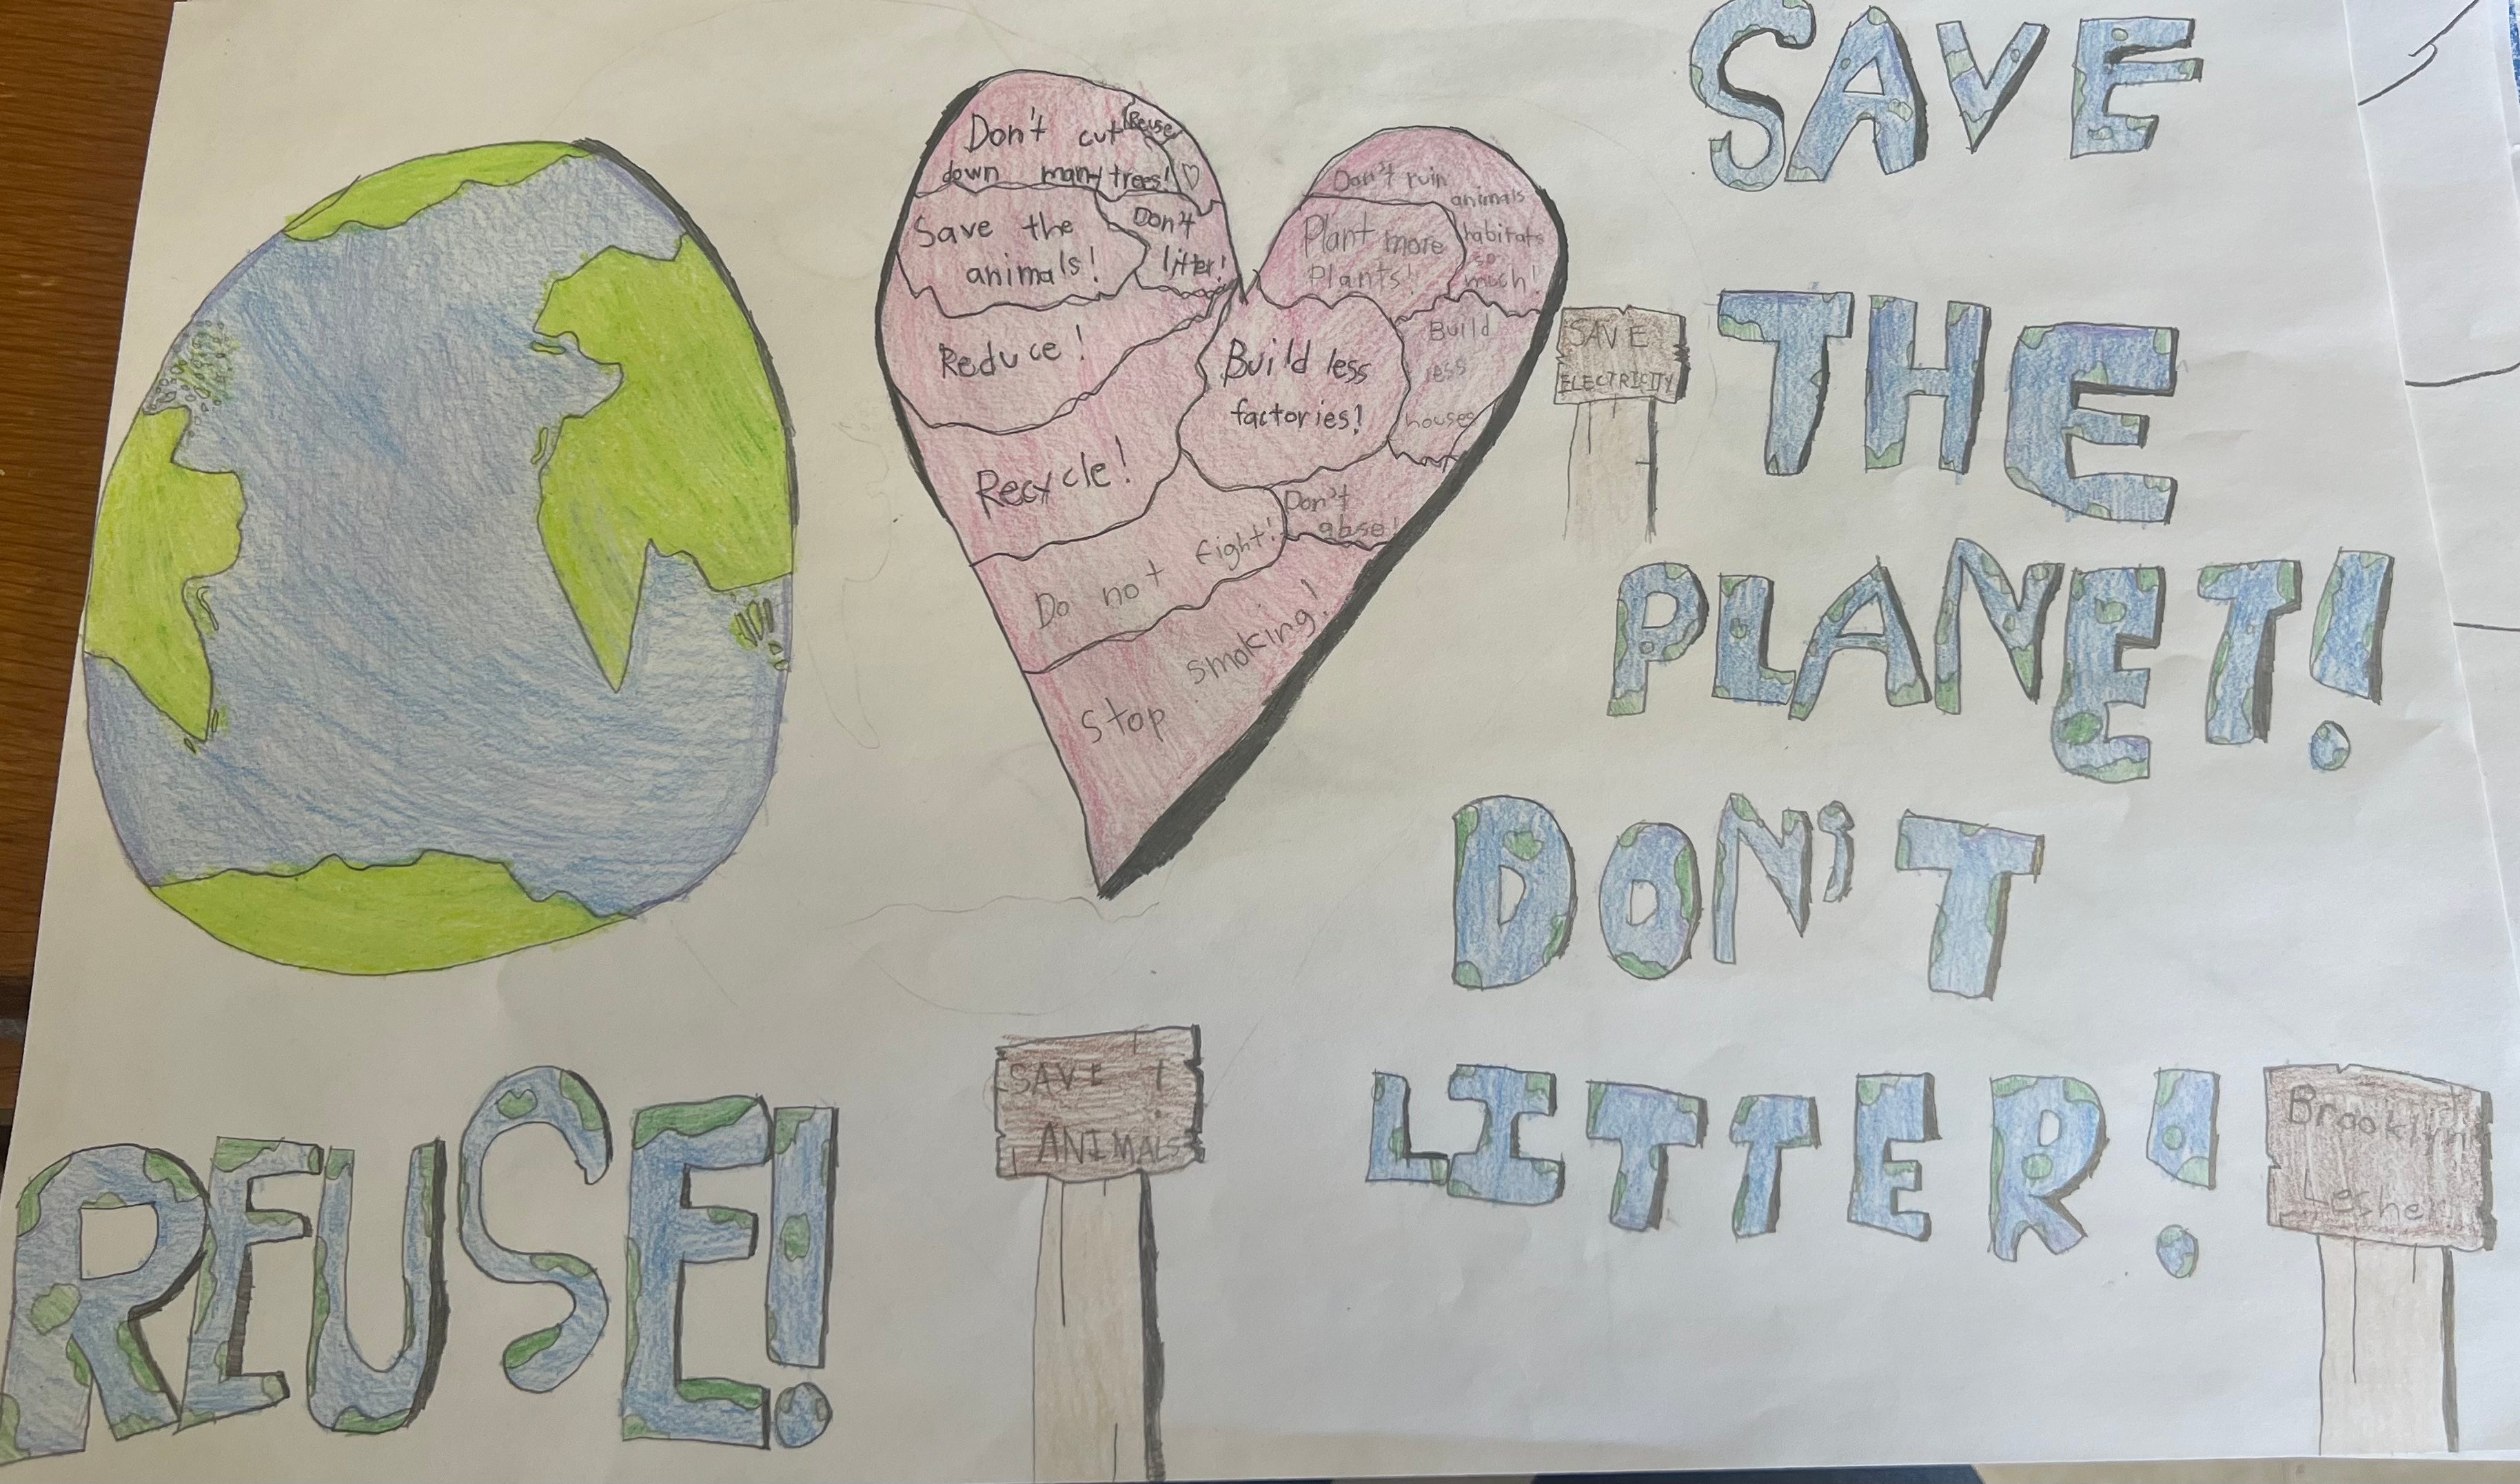 SAVE
THE
PLANET!
DON'T
LITTER!
REUSE!
Don't cut
down many trees!
Reuse
Save the
animals!
Don't
litter!
Reduce!
Recycle!
Do not fight!
Stop smoking!
Don't ruin
animals
habitats
so
much!
Plant more
Plants!
Build less
factories!
Build
less
houses
Don't
abse!
SAVE
ELECTRICITY
SAVE
ANIMALS
Brooklyn
Lesher